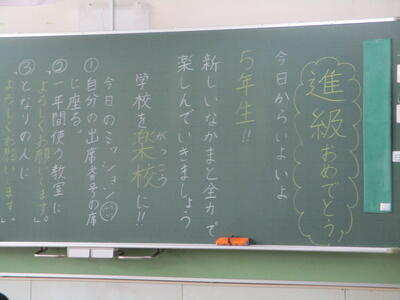 進級おめでとう
今日からいよいよ
5年生!!
新しいなかまと全力で
楽しんでいきましょう
がっこう
学校を楽校に!!
今日のミッション
①自分の出席番号の席
に座る。
②一年間使う教室に
「よろしくお願いします。」
③となりの人に
「よろしくお願いします。」